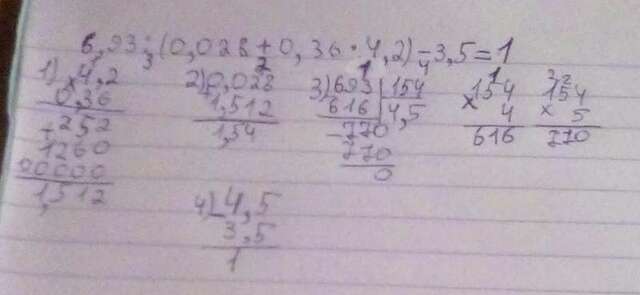 6,93:(0,028+0,36·4,2)-3,5=1
1 2 3 4
1) 4,2
× 0,36
+252
1260
00000
1,512
2) 0,028
1,512
1,54
3) 693 | 154
616 | 4,5
-770
770
0
1
154
× 4
616
3 2
154
× 5
770
4) -4,5
3,5
1